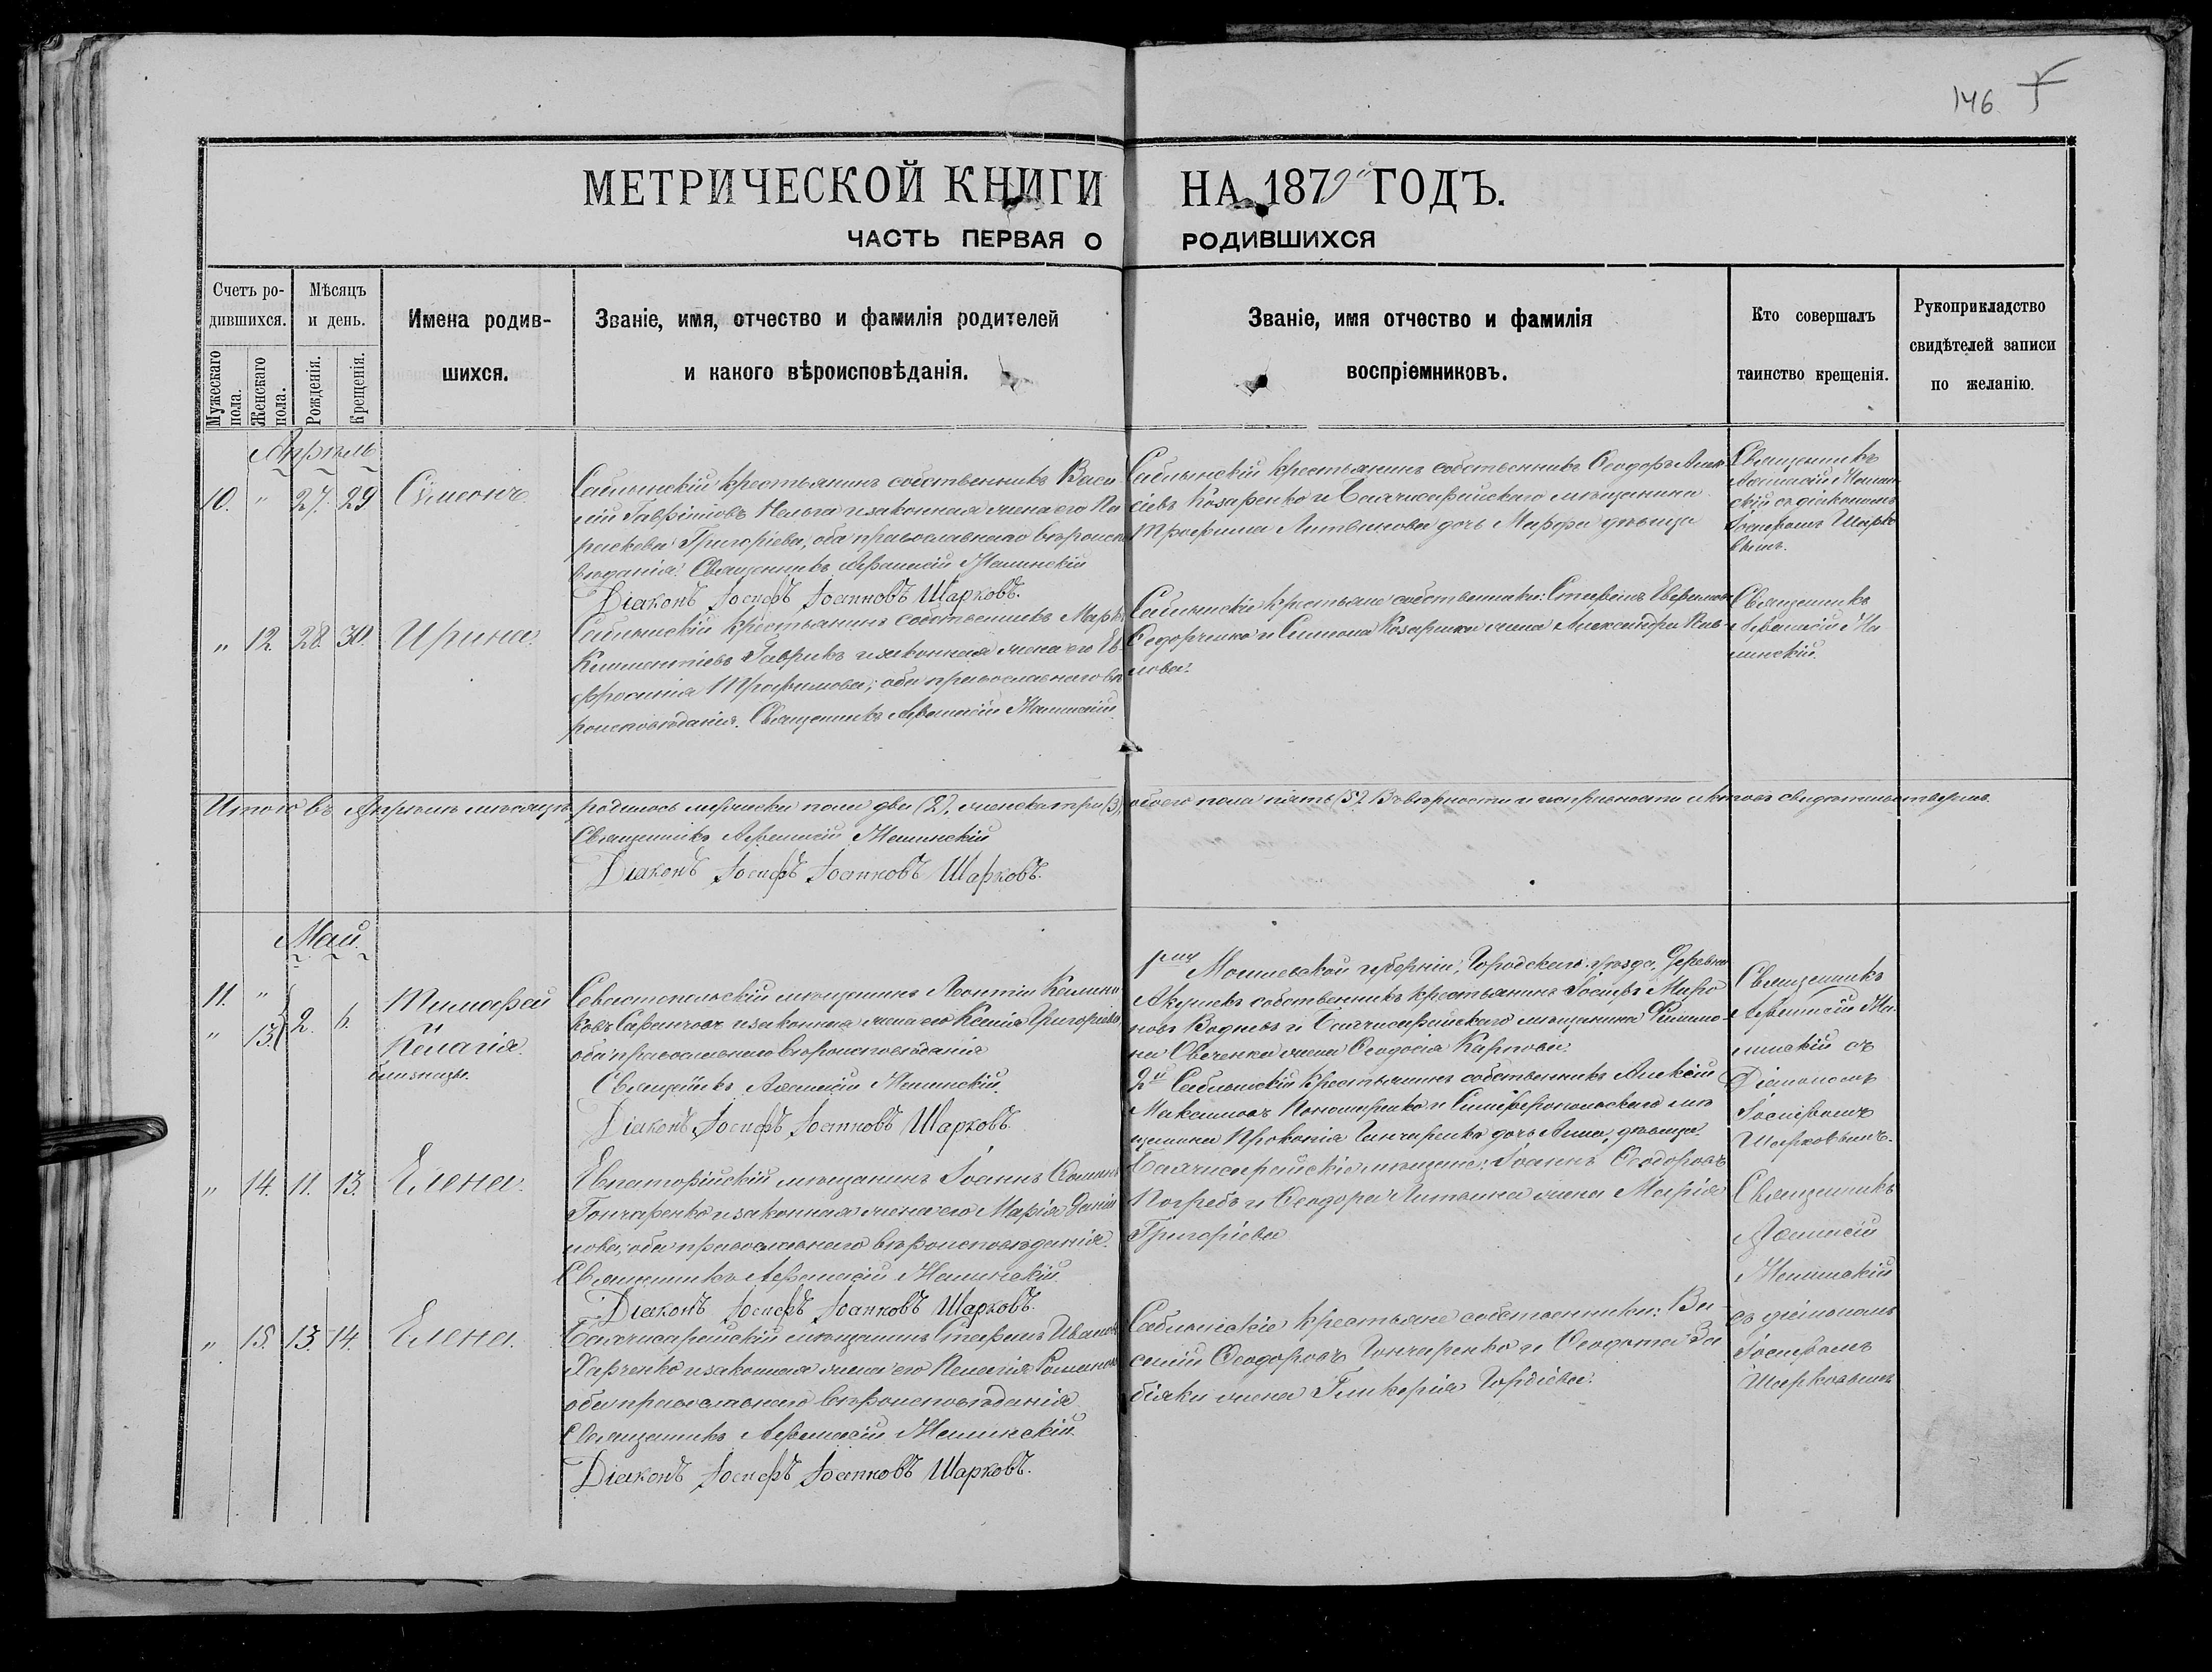 146
МЕТРИЧЕСКОЙ КНИГИ НА 1879й ГОДЪ.
ЧАСТЬ ПЕРВАЯ О РОДИВШИХСЯ
Счетъ ро-
дившихся.
Мужескаго
пола.
Женскаго
пола.
Мѣсяцъ
и день.
Рожденія.
Крещенія.
Имена родив-
шихся.
Званіе, имя, отчество и фамилія родителей
и какого вѣроисповѣданія.
Званіе, имя отчество и фамилія
воспріемниковъ.
Кто совершалъ
таинство крещенія.
Рукоприкладство
свидѣтелей записи
по желанію.
Апрѣль
10. " 27. 29 Сѵмеонъ
Саблынскій крестьянинъ собственникъ Васи
лій Гавріиловъ и законная жена его Па
раскева Григоріева, оба православнаго вѣроиспо
вѣданія. Священникъ Афанасій
Діаконъ Іосифъ Іоанновъ Шарковъ.
Саблынскій крестьянинъ собственникъ Ѳеодоръ Алек
сіевъ Козаренко и Бахчисарайскаго мѣщанина
Трофима Литвинова дочь Марфа дѣвица
Священникъ
Афанасій
скій съ діакономъ
Іосифомъ Шарко
вымъ.
" 12 28. 30. Ирина.
Саблынскій крестьянинъ собственникъ Маркъ
Климентіевъ Гаврикъ и законная жена его Ев
фросинія Трофимова; оба православнаго вѣ
роисповѣданія. Священникъ Афанасій
Саблынскіе крестьяне собственники: Стефанъ
Ѳедорченко и Симеона Козаренка жена Александра Пав-
лова.
Священникъ
Афанасій
линскій.
Итого въ Апрѣлѣ мѣсяцѣ родилось мужеска пола два (2), женска три (3), обоего пола пять (5). Въ вѣрности и исправности актовъ свидѣтельствуемъ.
Священникъ Афанасій
Діаконъ Іосифъ Іоанновъ Шарковъ.
Май.
11. " 2. 6. Тимофей
" 13. Пелагія.
близнецы.
Севастопольскій мѣщанинъ Леонтій
и законная жена его Ксенія Григоріева
оба православнаго вѣроисповѣданія
Священникъ Афанасій
Діаконъ Іосифъ Іоанновъ Шарковъ.
Могилевской губерніи, Городскаго уѣзда, Деревни
собственникъ крестьянинъ Іосифъ Миро
новъ и Бахчисарайскаго мѣщанина Филимо
на Овченка жена Ѳеодосія Карпова.
2й Саблынскій крестьянинъ собственникъ Алексій
Максимовъ Пономаренко и Симферопольскаго мѣ
щанина Прокопія Гончаренко дочь Анна, дѣвица.
Священникъ
Афанасій
линскій съ
Діакономъ
Іосифомъ
Шарковымъ.
" 14. 11. 13. Елена.
Евпаторійскій мѣщанинъ Іоаннъ
Гончаренко и законная жена его Марія
нова, оба православнаго вѣроисповѣданія.
Священникъ Афанасій
Діаконъ Іосифъ Іоанновъ Шарковъ.
Бахчисарайскіе мѣщане: Іоаннъ Ѳеодоровъ
Погребъ и Ѳеодора Литвина жена Марія
Григоріева
Священникъ
Афанасій
съ діакономъ
Іосифомъ
Шарковымъ
" 15. 13. 14. Елена.
Бахчисарайскій мѣщанинъ Стефанъ Ивановъ
Харченко и законная жена его Пелагія Романова
оба православнаго вѣроисповѣданія
Священникъ Афанасій
Діаконъ Іосифъ Іоанновъ Шарковъ.
Саблынскіе крестьяне собственники: Ва
силій Ѳеодоровъ Гончаренко и Ѳеодота За
біяки жена Гликерія Гордіева.